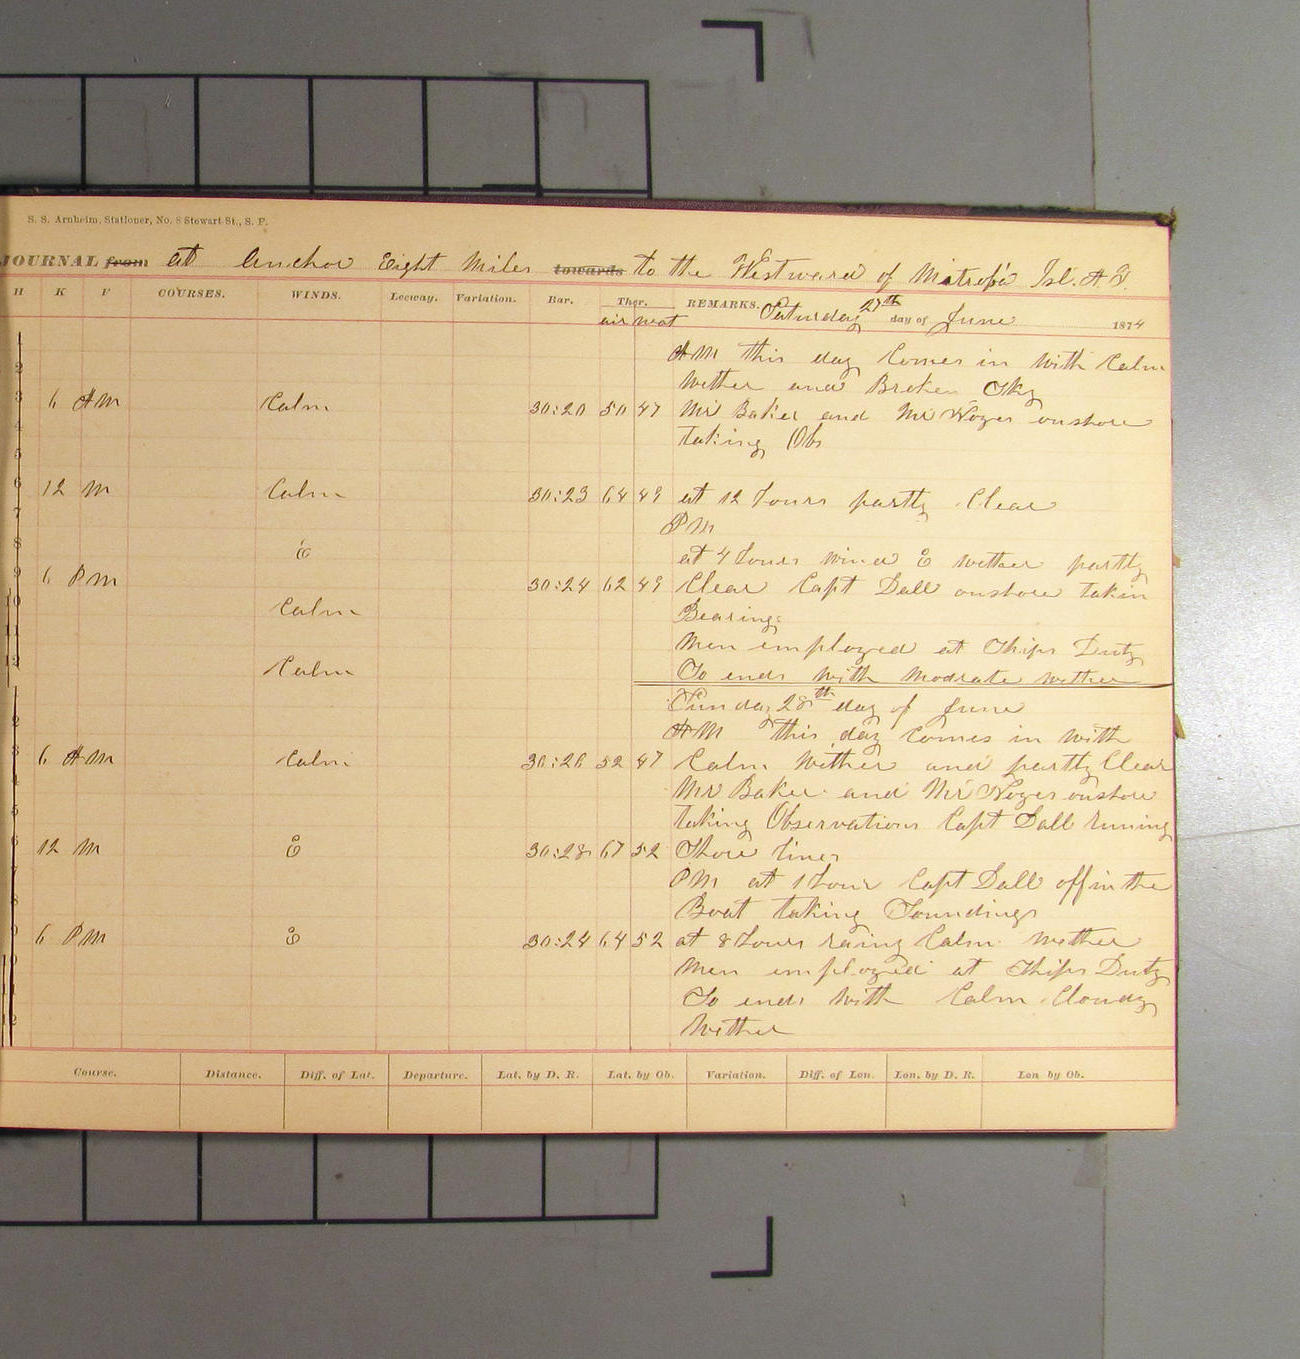 S. S. Arnheim, Stationer, No. 8 Stewart St., S. F.
JOURNAL from at Anchor Eight Miles towards to the Westward of Isl. A. T.
H K F COURSES. WINDS. Leeway. Variation. Bar. Ther. REMARKS. Saturday 27th day of June 1874
air wat
AM this day Comes in with Calm
Wether and Broken Sky
6 AM Calm 30:20 50 47 Mr Baker and Mr Noyes onshore
taking Obs
12 M Calm 30:23 64 49 at 12 hours partly Clear
PM
E at 4 hours wind E wether partly
6 PM 30:24 62 49 Clear Capt Dall onshore takin
Calm Bearings
Men employed at Ships Duty
Calm So ends with Modrate wether
Sunday 28th day of June
AM this day Comes in with
6 AM Calm 30:26 52 47 Calm Wether and partly Clear
Mr Baker and Mr Noyes onshore
taking Observations Capt Dall runing
12 M E 30:28 67 52 Shore lines
PM at 1 hour Capt Dall off in the
Boat taking Soundings
6 PM E 30:24 64 52 at 8 hours raing Calm wether
Men employed at Ships Duty
So ends with Calm Cloudy
Wether
Course. Distance. Diff. of Lat. Departure. Lat. by D. R. Lat. by Ob. Variation. Diff. of Lon. Lon. by D. R. Lon by Ob.